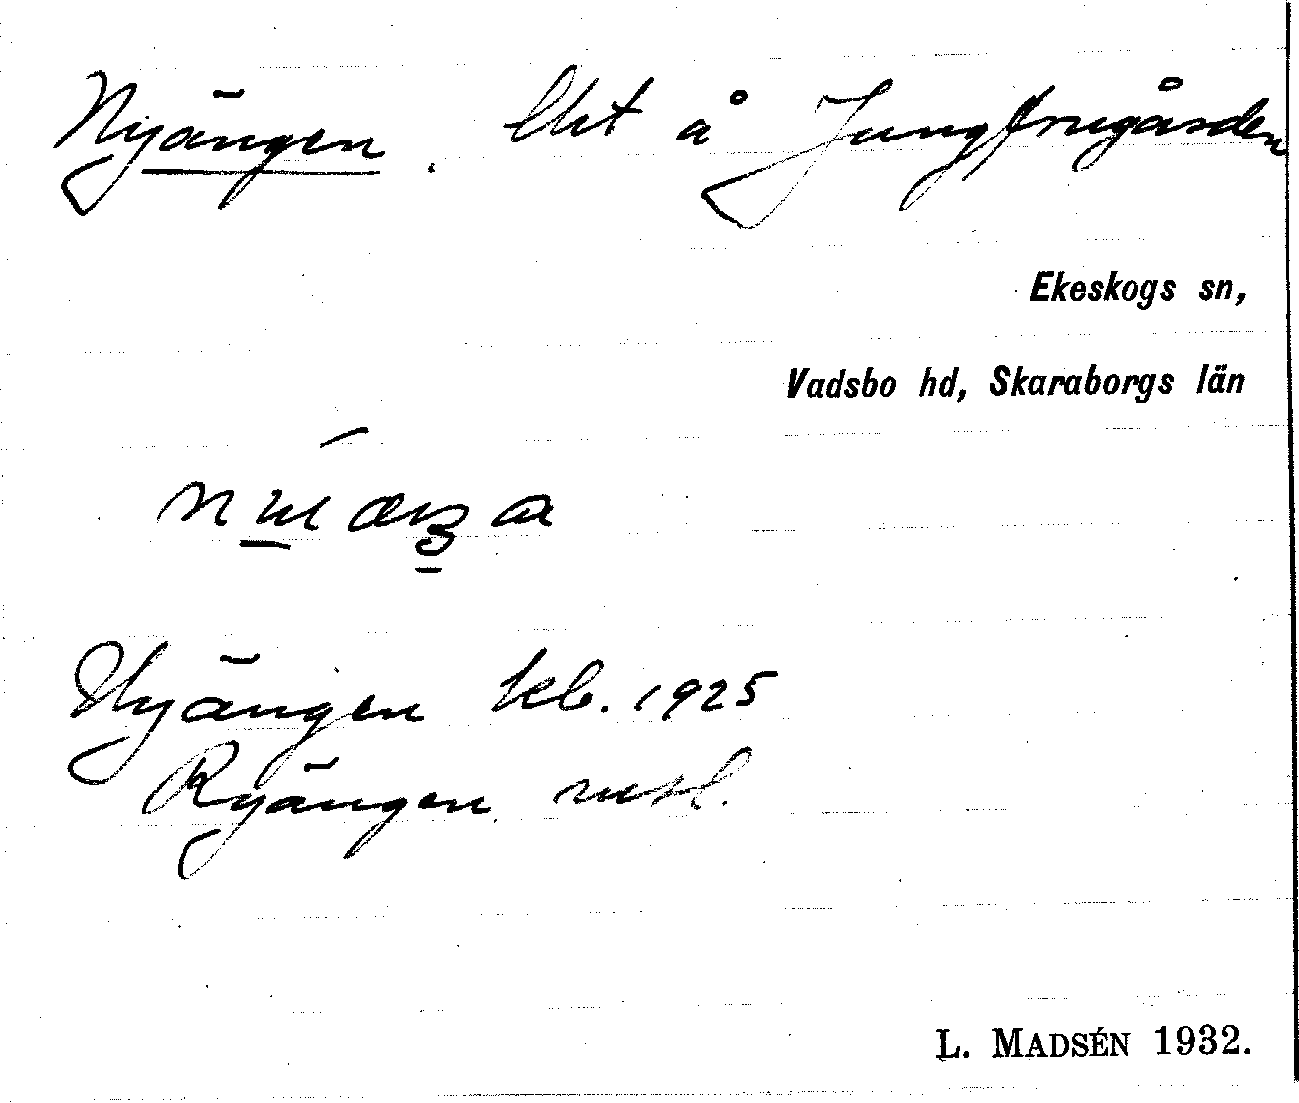 Nyängen. lht å Jungfrugården
Ekeskogs sn,
Vadsbo hd, Skaraborgs län
Nyängen kb. 1925
Ryängen
L. MADSÉN 1932.